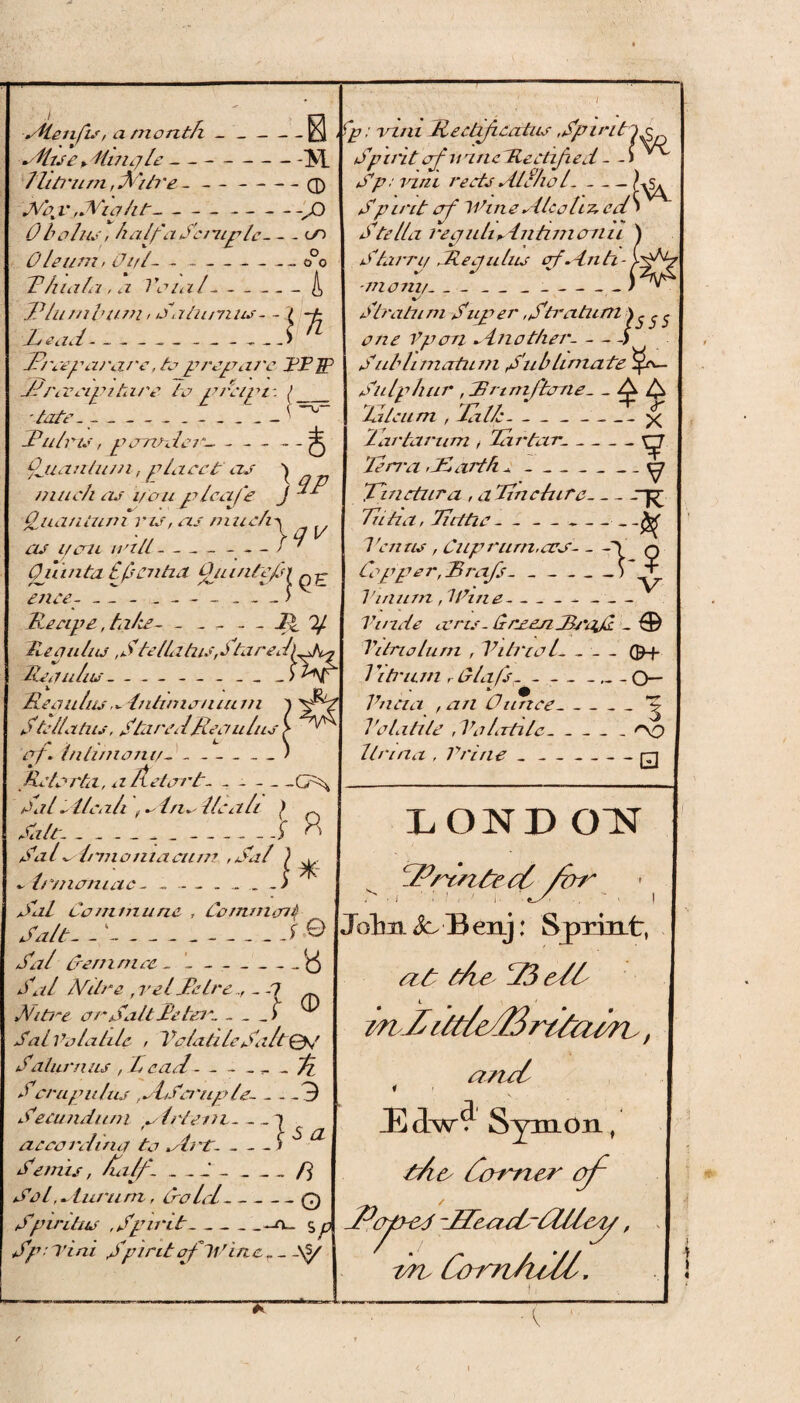 Mensis, a month
Mise, Mingle M
Nitrum, Nitre
Nox, Night
Obolus, half a Scruple
Oleum, Oyl
Phiala, a Voial
Plumbum, Saturnus
Lead
Præparare, to prepare PP
Præcipitare to precipi-
-tate
Pulvis, powder
Quantum, placet as
much as you please qp
Quantum vis, as much
as you will q V
Quinta Essentia Quintess
ence QE
Recipe, take ♃
Regulus, Stellatus, Stared
Regulus
Regulus, Antimonium
Stellatus, Stared Regulus
of Antimony
Retorta, a Retort
Sal Alcali, An Alcali
Salt
Sal Armoniacum, Sal
Armoniac
Sal Commune, Common
Salt
Sal Gemmæ
Sal Nitre, vel Petre,
Nitre or Salt Peter
Sal Volatile, Volatile Salt
Saturnus, Lead ♄
Scrupulus, A Scruple ℈
Secundum Artem
according to Art S a
Semis, half ß
Sol, Aurum, Gold
Spiritus, Spirit sp
Sp: Vini Spirit of Wine
Sp: vini Rectificatus, Spirit
Spirit of wine Rectified
Sp: vini rects Alchol
Spirit of Wine Alcolized
Stella reguli Antimonii
Starry, Regulus of Anti-
-mony
Stratum Super, Stratum
one Vpon Another SSS
Sublimatum Sublimate
Sulphur, Brimstone
Talcum, Talk X
Tartarum, Tartar
Terra, Earth
Tinctura, a Tincture
Tutia, Tuttie
Venus, Cuprum, æs
Copper, Brass ♀
Vinum, Wine V
Viride æris Green Brass
Vitriolum, Vitriol
Vitrum, Glass
Vncia, an Ounce
Volatile, Volatile
Urina, Vrine
LONDON
Printed for
John & Benj: Sprint,
at the Bell
in Little Britain,
and
Edwd Symon,
the Corner of
Popes-Head-Alley,
in Cornhill.